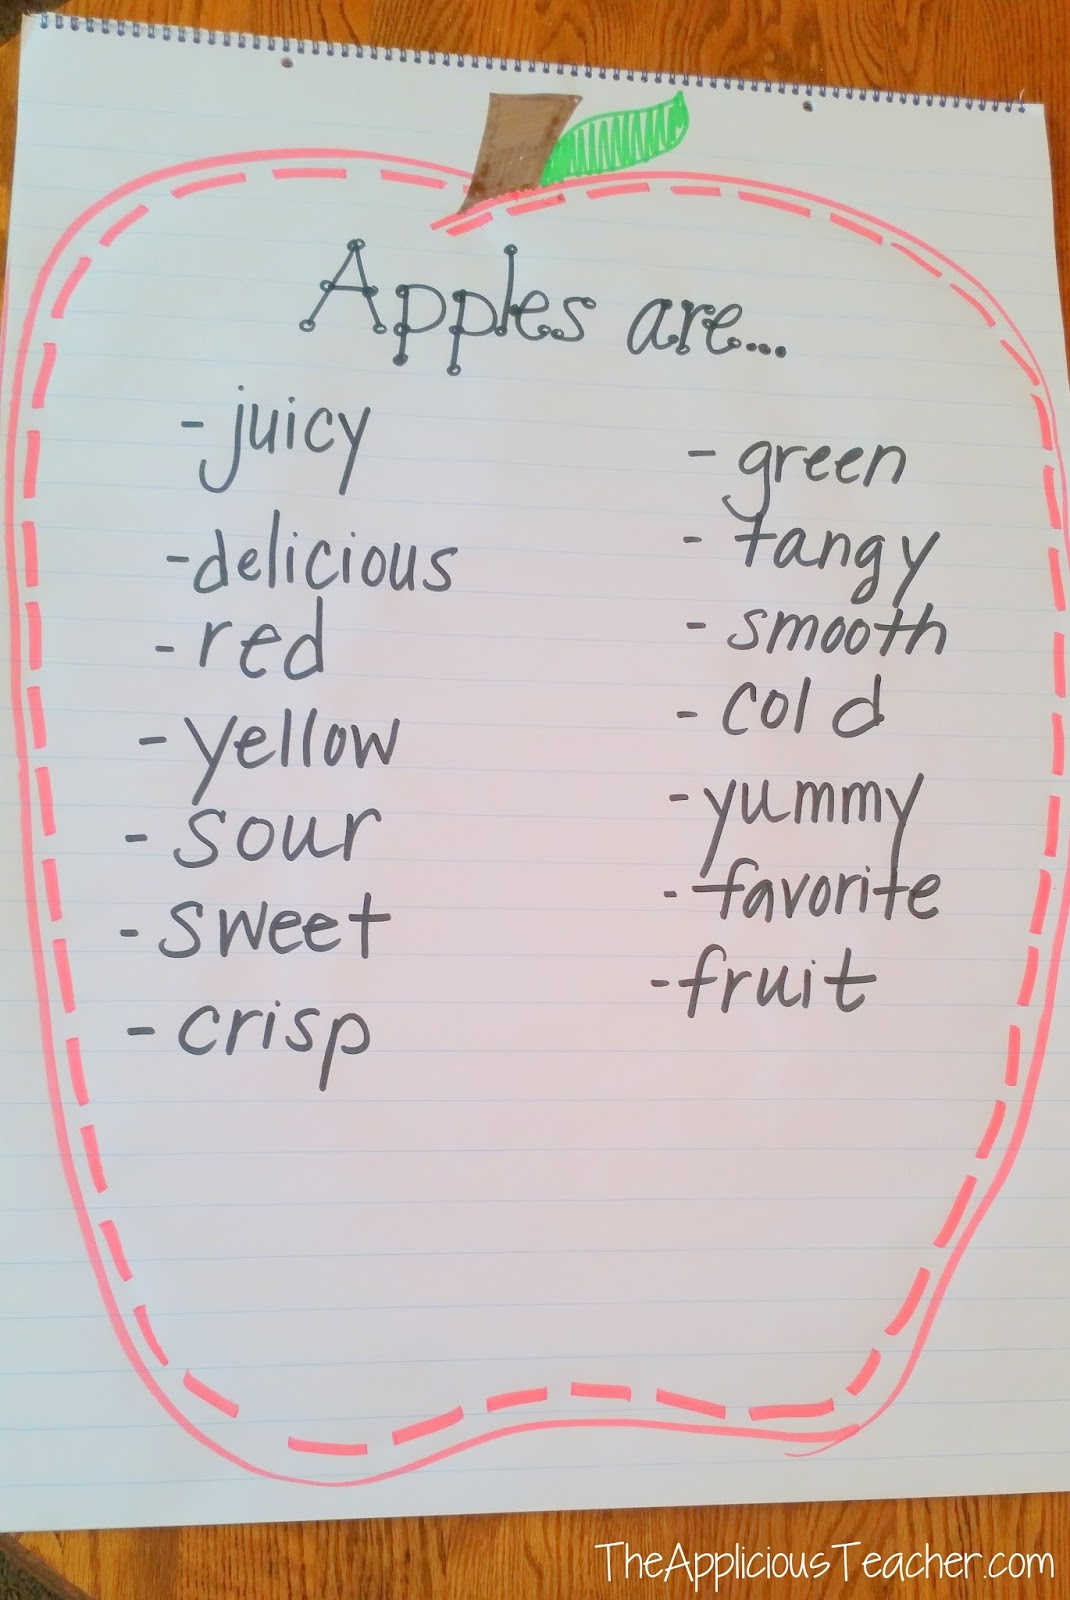 Apples are...
- juicy
- delicious
- red
- yellow
- sour
- sweet
- crisp
- green
- tangy
- smooth
- cold
- yummy
- favorite
- fruit
TheAppliciousTeacher.com